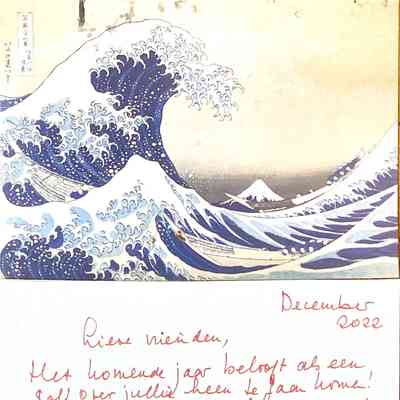 December
2022
Lieve vrienden,
Het komende jaar belooft als een
golf over jullie heen te gaan komen!